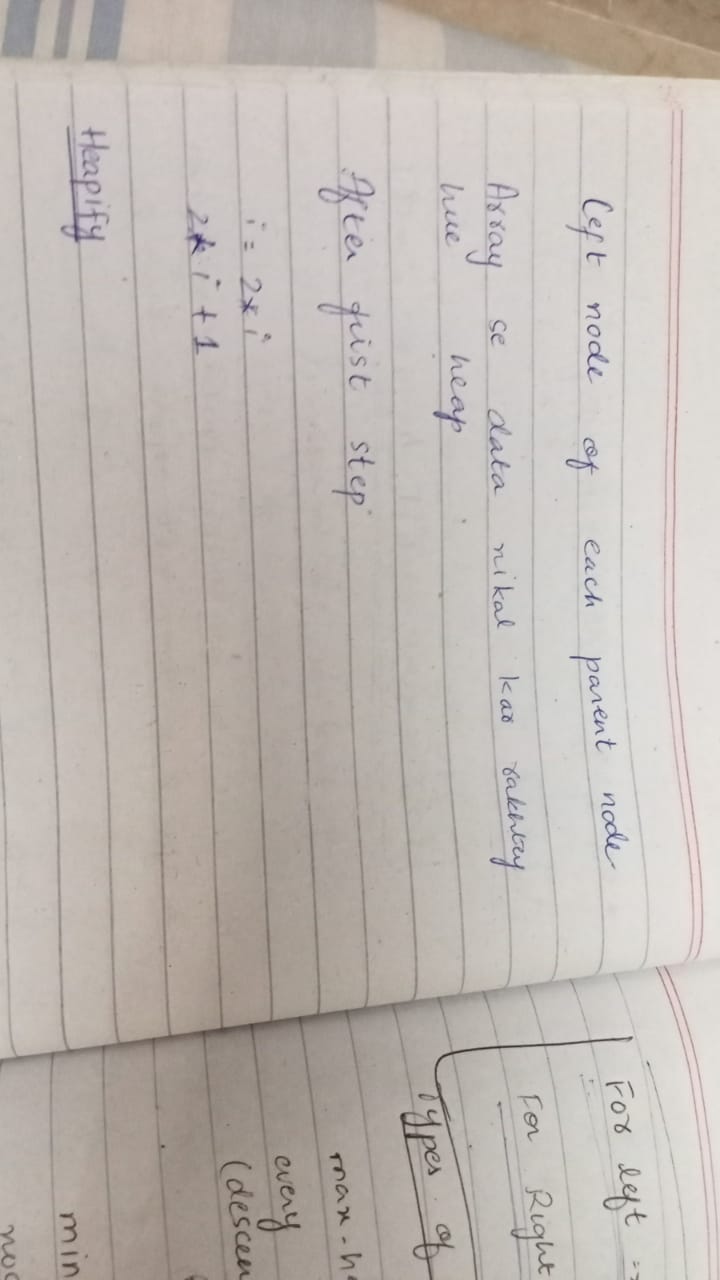 Left node of each parent node
Array se data nikal kar rakhtey
hue heap
After first step
i = 2* i
2* i + 1
Heapify
For left
For Right
Types of
max-he
every
(descen
min
nod